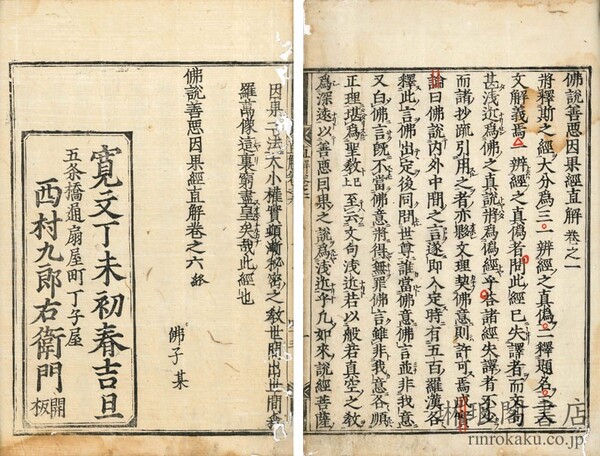 佛説善惡因果經直解 卷之一
將釋斯之經大分爲三一辨經之眞僞二釋題名三入
文解義焉一辨經之眞僞者問此經已失譯者而文句
甚淺近爲佛之眞説將爲僞經乎答諸經失譯者不少
而諸抄疏引用之者亦夥文理契佛意則許可焉
論曰佛説内外中間之言遂即入定時有五百羅漢各
釋此言佛出定後同問世尊誰當佛意佛言並非我意
又白佛言既不當佛意將得無罪佛言雖非我意各順
正理堪爲聖教 文句淺近若以般若眞空之教
爲深遠以善惡因果之説爲淺近乎凡如來説經菩薩
因果 法大小權實顯漸秘密之教世間出世間
羅萬像這裏窮盡皇矣哉此經也
佛説善惡因果經直解卷之六 終
佛子 某
寛文丁未初春吉旦
五条橋通扇屋町丁子屋
西村九郎右衛門 開板
rinrokaku.co.jp